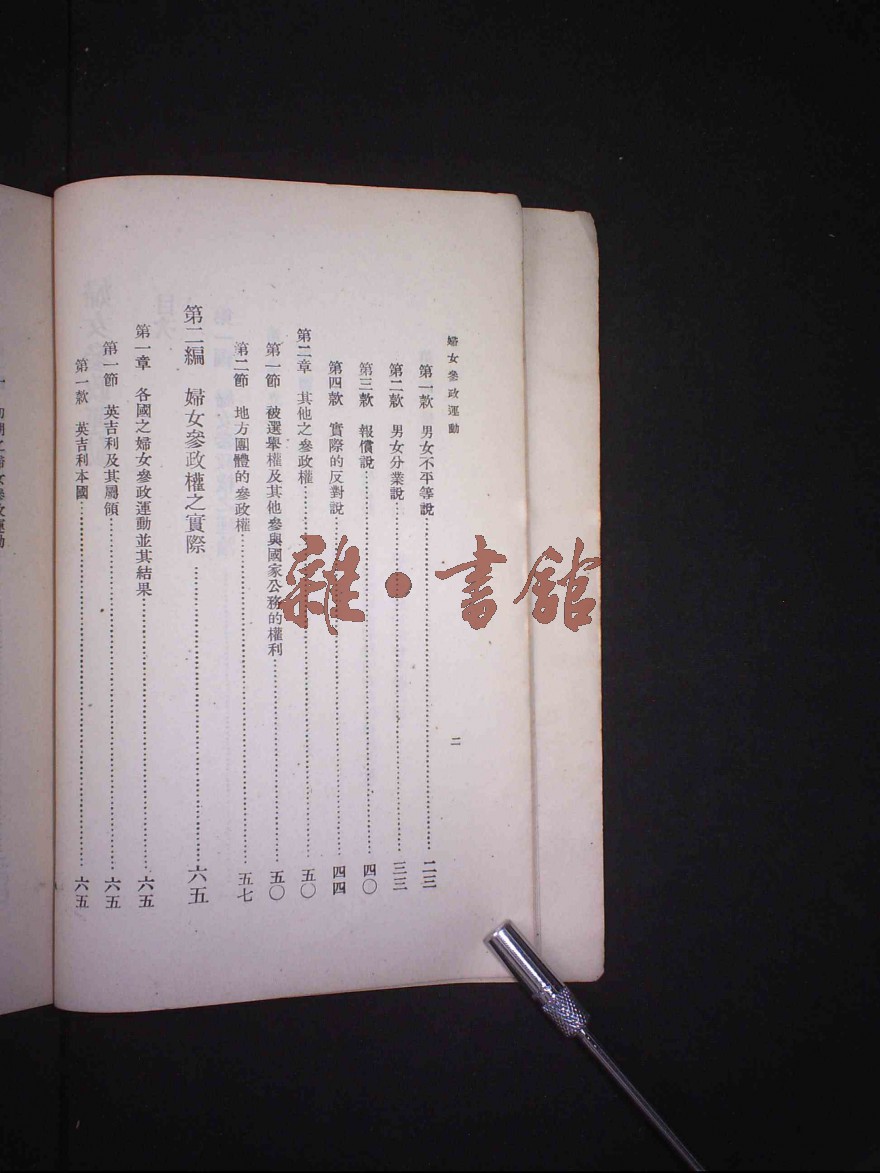 婦女參政運動
二
第一款 男女不平等說……二三
第二款 男女分業說……三三
第三款 報償說……四〇
第四款 實際的反對說……四四
第二章 其他之參政權……五〇
第一節 被選舉權及其他參與國家公務的權利……五〇
第二節 地方團體的參政權……五七
第二編 婦女參政權之實際……六五
第一章 各國之婦女參政運動並其結果……六五
第一節 英吉利及其屬領……六五
第一款 英吉利本國……六五
雜·書館